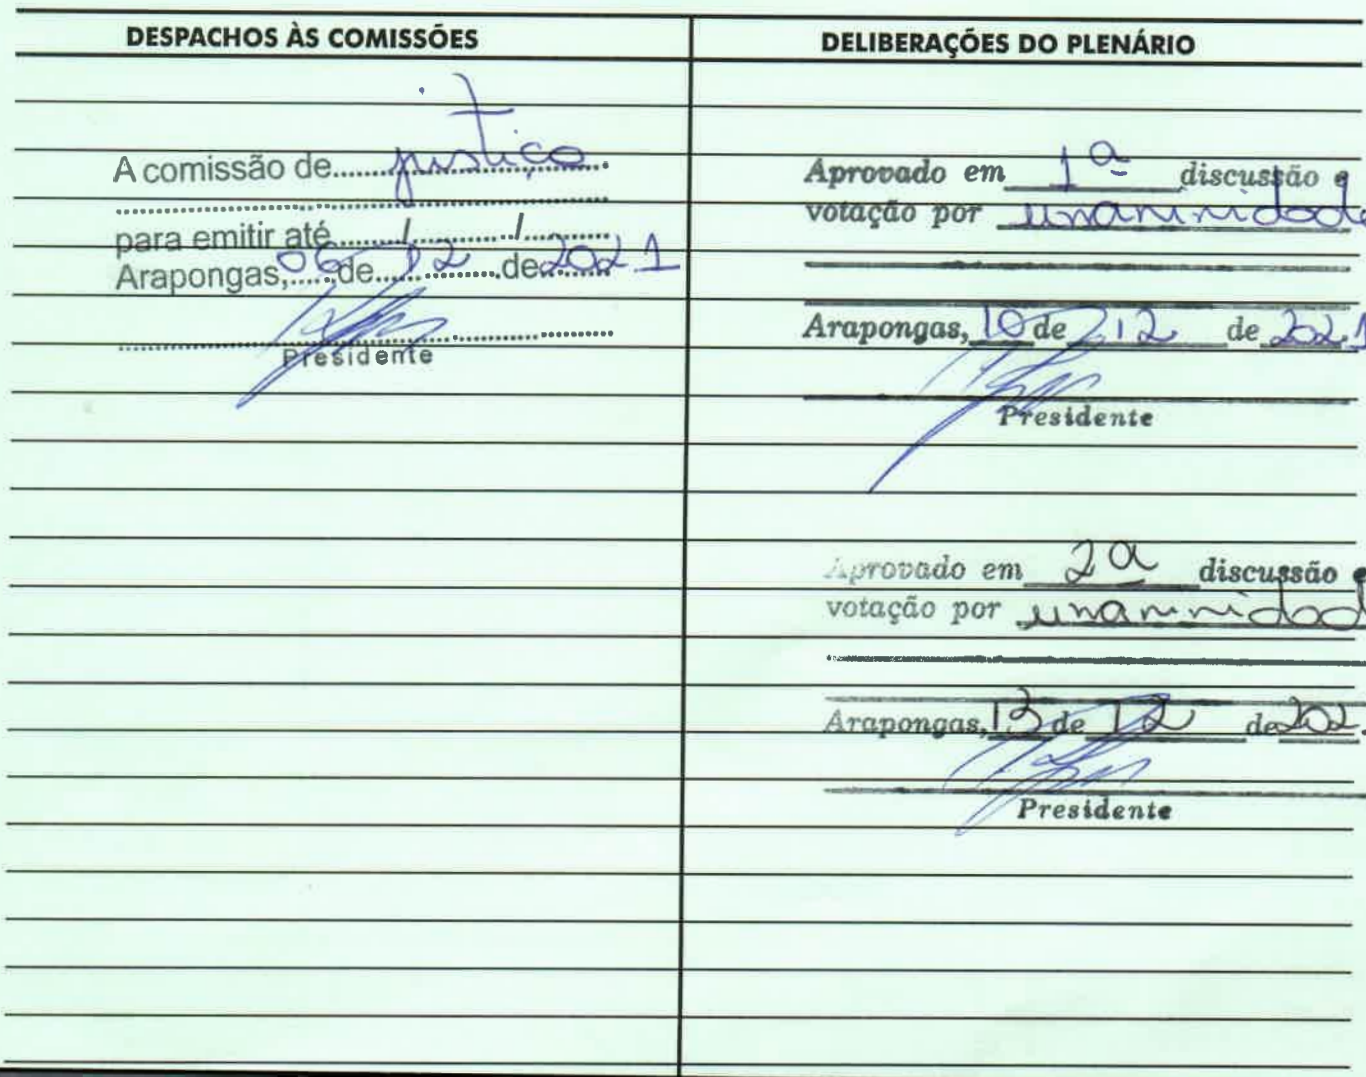 DESPACHOS ÀS COMISSÕES
A comissão de justiça
para emitir até / /
Arapongas, 06 de 12 de 2021
Presidente
DELIBERAÇÕES DO PLENÁRIO
Aprovado em 1ª discussão e
votação por unanimidade
Arapongas, 10 de 12 de 2021
Presidente
Aprovado em 2ª discussão e
votação por unanimidad
Arapongas, 13 de 12 de 202
Presidente